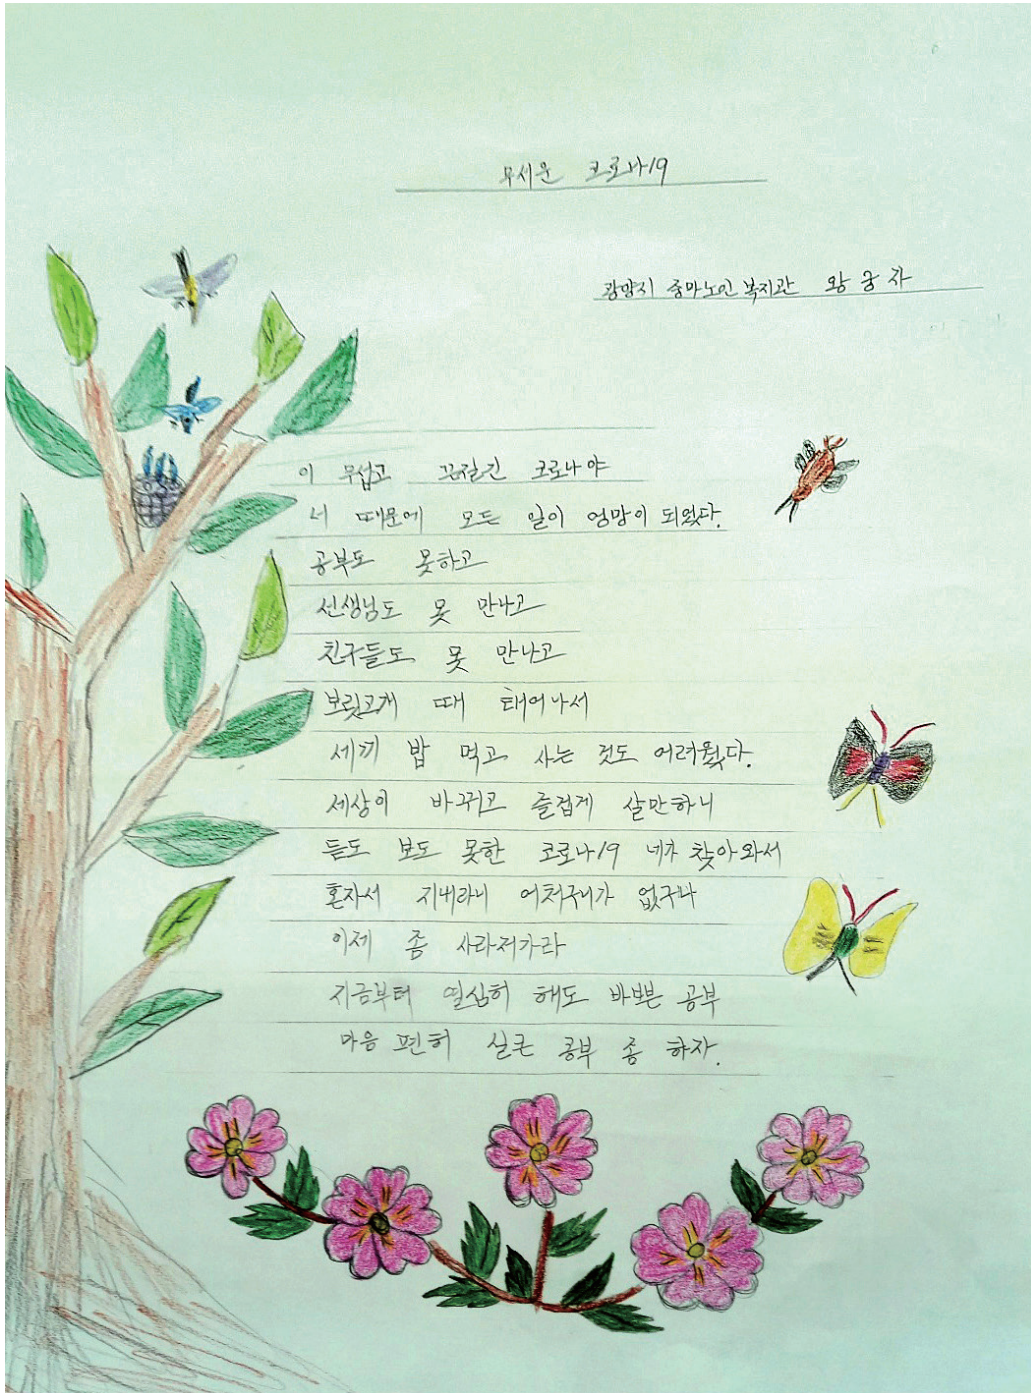 무서운 코로나19
광양시 중마노인복지관 왕궁자
이 무섭고 끈질긴 코로나야
너 때문에 모든 일이 엉망이 되었다.
공부도 못하고
선생님도 못 만나고
친구들도 못 만나고
보릿고개 때 태어나서
세끼 밥 먹고 사는 것도 어려웠다.
세상이 바뀌고 즐겁게 살만하니
듣도 보도 못한 코로나19 네가 찾아와서
혼자서 지내라니 어처구니가 없구나
이제 좀 사라저가라
지금부터 열심히 해도 바쁜 공부
마음 편히 실큰 공부 좀 하자.